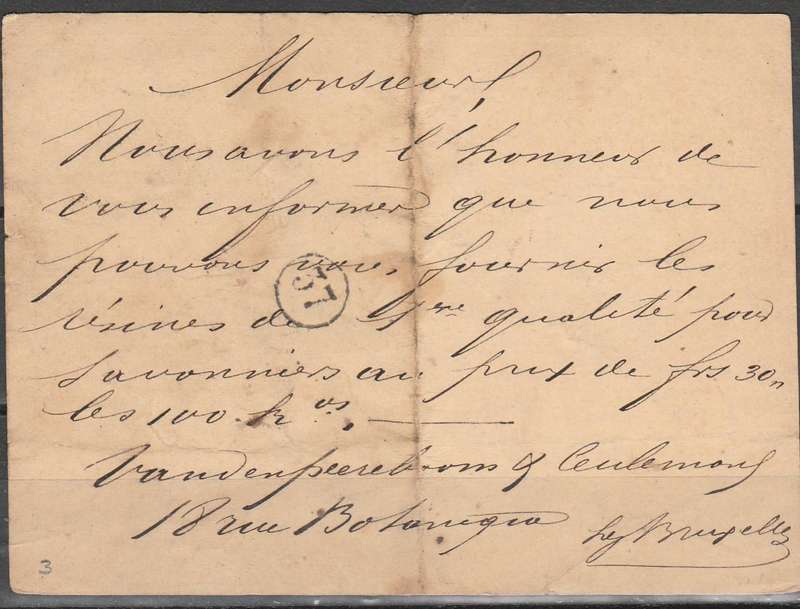 Monsieur,
Nous avons l'honneur de
vous informer que nous
pouvons vous fournir les
résines de 1ère qualité pour
savonniers au prix de frs 30,,
les 100 kos. —
Vandenpeereboom & Ceulemans
18 rue Botanique Bruxelles
57
3